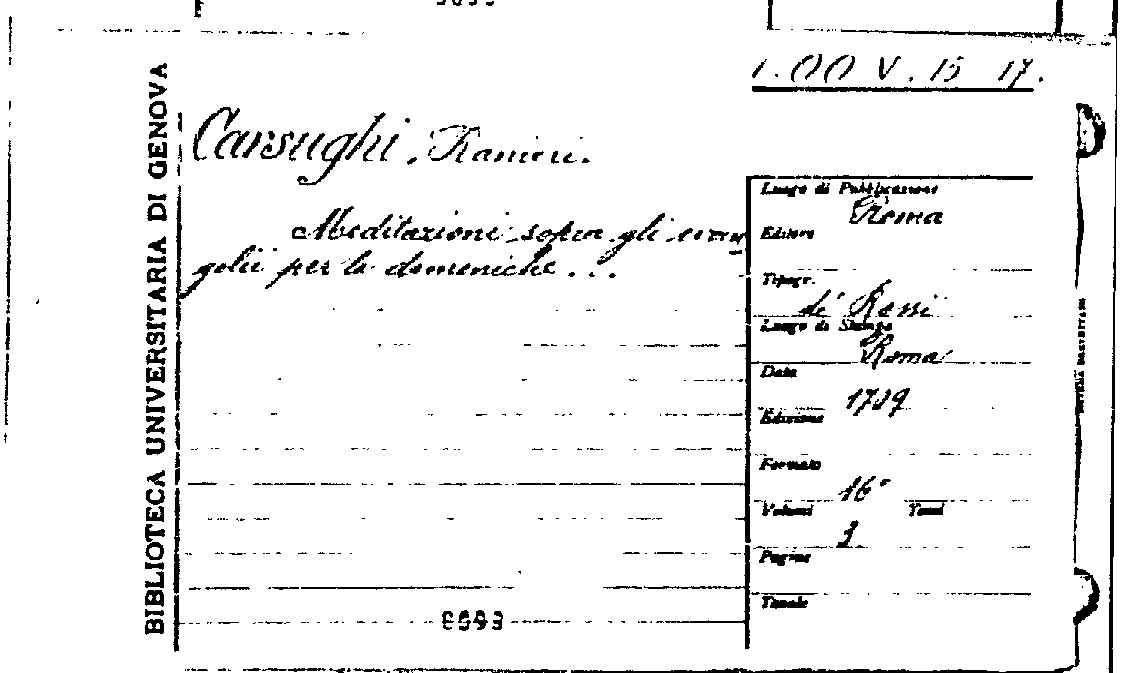 1.OO V. 15 17.
BIBLIOTECA UNIVERSITARIA DI GENOVA
Carsughi, Ranieri.
Meditazioni sopra gli evan
gelii per le domeniche...
Luogo di Pubblicazione
Roma
Editore
Tipogr.
de' Rossi
Luogo di Stampa
Roma
Data
1709
Edizione
Formato
16°
Volumi Tomi
3
Pagine
Tavole